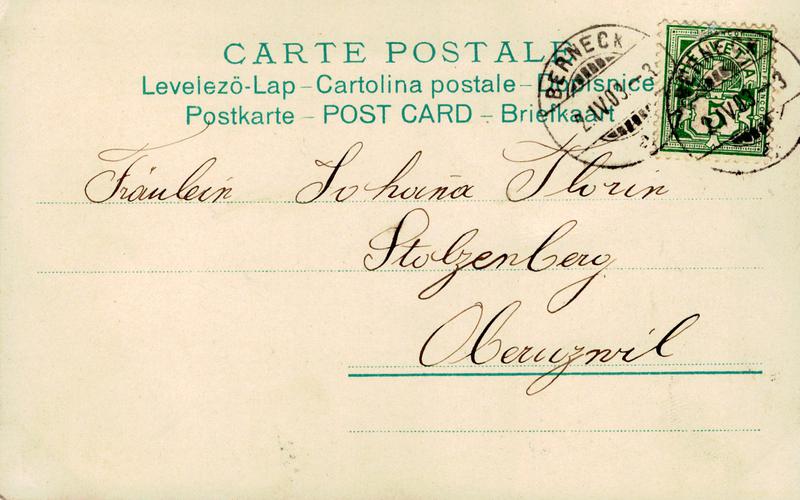 CARTE POSTALE
Levelezö-Lap – Cartolina postale – Dopisnice
Postkarte – POST CARD – Briefkaart
BERNECK
2.IV.03
HELVETIA
5
2.IV.03
3
Fräulein Johaña Florin
Stolzenberg
Oberuzwil